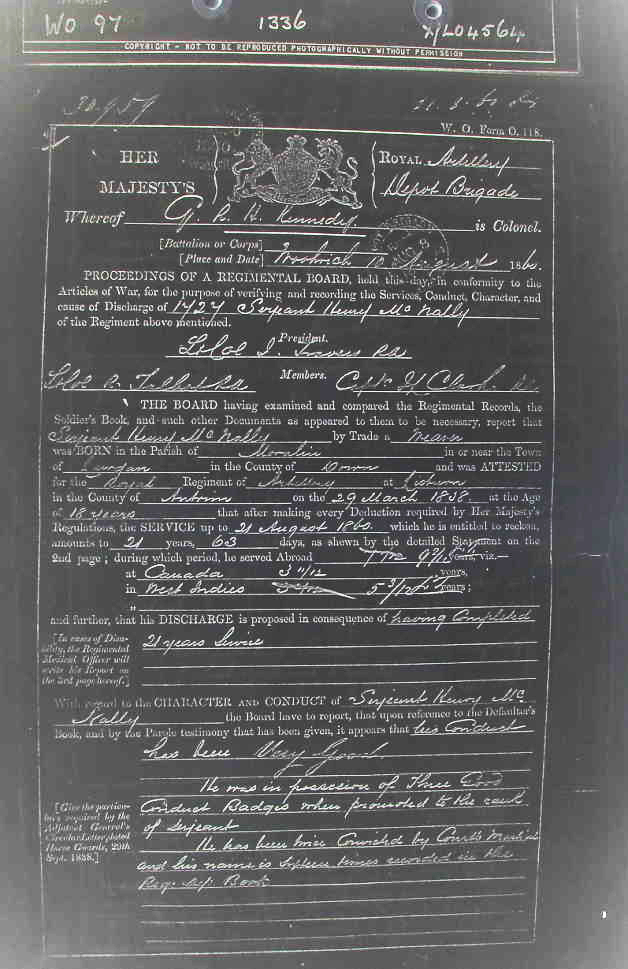 WO 97 1336 X/LO4564
COPYRIGHT - NOT TO BE REPRODUCED PHOTOGRAPHICALLY WITHOUT PERMISSION
W. O. Form O. 118.
HER MAJESTY'S
ROYAL Artillery
Depot Brigade
Whereof G. R. H. Kennedy. is Colonel.
[Battalion or Corps]
[Place and Date] Woolwich August 1860.
PROCEEDINGS OF A REGIMENTAL BOARD, held this day, in conformity to the
Articles of War, for the purpose of verifying and recording the Services, Conduct, Character, and
cause of Discharge of 1727 Serjeant Henry Mc Nally
of the Regiment above mentioned.
President.
Lt Col I. Travers RA
Members.
Lt Col Capt H Clark. RA
THE BOARD having examined and compared the Regimental Records, the
Soldier's Book, and such other Documents as appeared to them to be necessary, report that
Serjeant Henry Mc Nally by Trade a
was BORN in the Parish of Moralin in or near the Town
of Lurgan in the County of Down and was ATTESTED
for the Royal Regiment of Artillery at Lisburn
in the County of Antrim on the 29 March 1838. at the Age
of 18 years that after making every Deduction required by Her Majesty's
Regulations, the SERVICE up to 21 August 1860. which he is entitled to reckon,
amounts to 21 years, 63 days, as shewn by the detailed Statement on the
2nd page; during which period, he served Abroad years, viz.—
at Canada 3 11/12 years,
in West Indies 5 3/12 years;
"
and further, that his DISCHARGE is proposed in consequence of having Completed
21 years Service
[In cases of Disability, the Regimental
Medical Officer will
write his Report on
the 3rd page hereof.]
With regard to the CHARACTER AND CONDUCT of Serjeant Henry Mc
Nally the Board have to report, that upon reference to the Defaulter's
Book, and by the Parole testimony that has been given, it appears that his Conduct
has been Very Good
He was in possession of Three Good
Conduct Badges when promoted to the rank
of Serjeant
He has been twice Convicted by Courts Martial
and his name is times recorded in the
Reg. Book
[Give the particulars required by the
Adjutant General's
Circular Letter, dated
Horse Guards, 29th
Sept. 1838.]